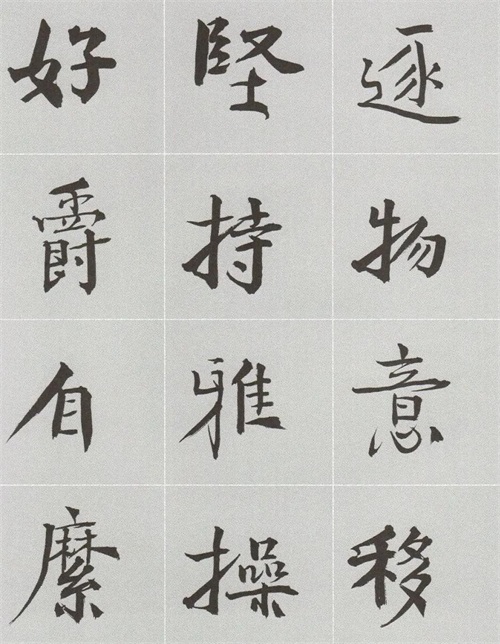 逐物意移
堅持雅操
好爵自縻